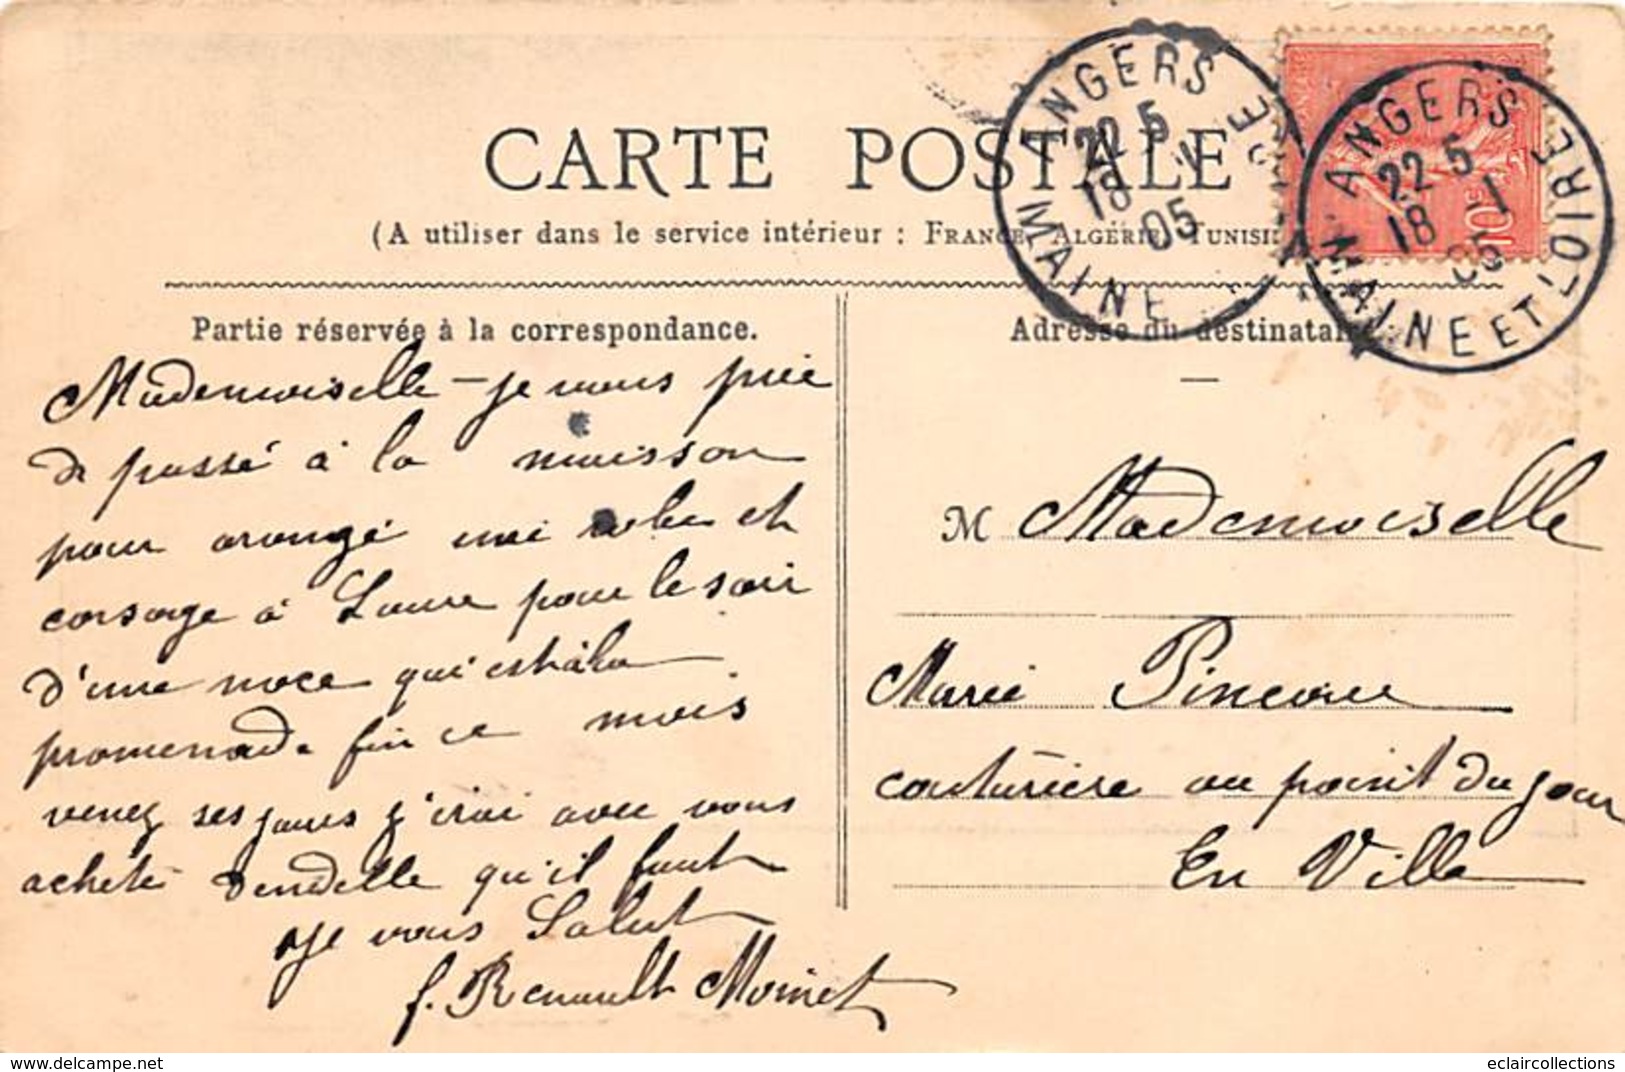 CARTE POSTALE
(A utiliser dans le service intérieur : FRANCE, ALGÉRIE, TUNISI
ANGERS
22 5
18 -1
05
MAINE ET LOIRE
ANGERS
22 5
18 -1
05
MAINE ET LOIRE
10
Partie réservée à la correspondance.
Mademoiselle - je vous prie
de passé à la maison
pour arangé une robe et
corsage à Laure pour le soir
d'une noce qui est à la
promenade fin ce mois
venez ses jours j'irai avec vous
acheté dendelle qu'il faut
Je vous Salut
f. Renault Moinet
Adresse du destinatai
M Mademoiselle
Marie
couturière au point du jour
En Ville
www.delcampe.net
eclaircollections